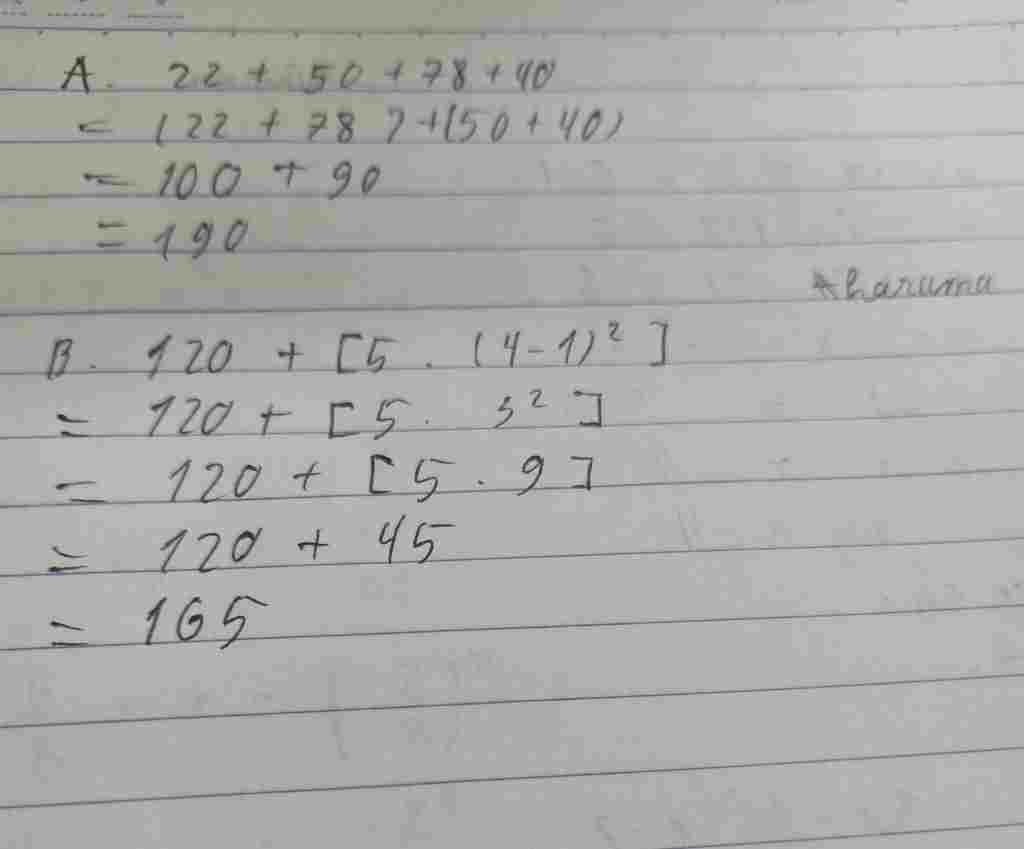 A. 22 + 50 + 78 + 40
= (22 + 78) + (50 + 40)
= 100 + 90
= 190
haruma
B. 120 + [5 . (4-1)²]
= 120 + [5 . 3²]
= 120 + [5 . 9]
= 120 + 45
= 165